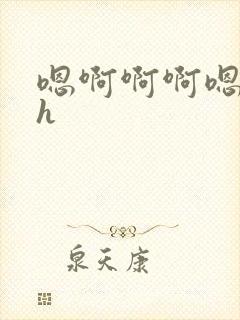 嗯啊啊啊嗯
h
泉天康